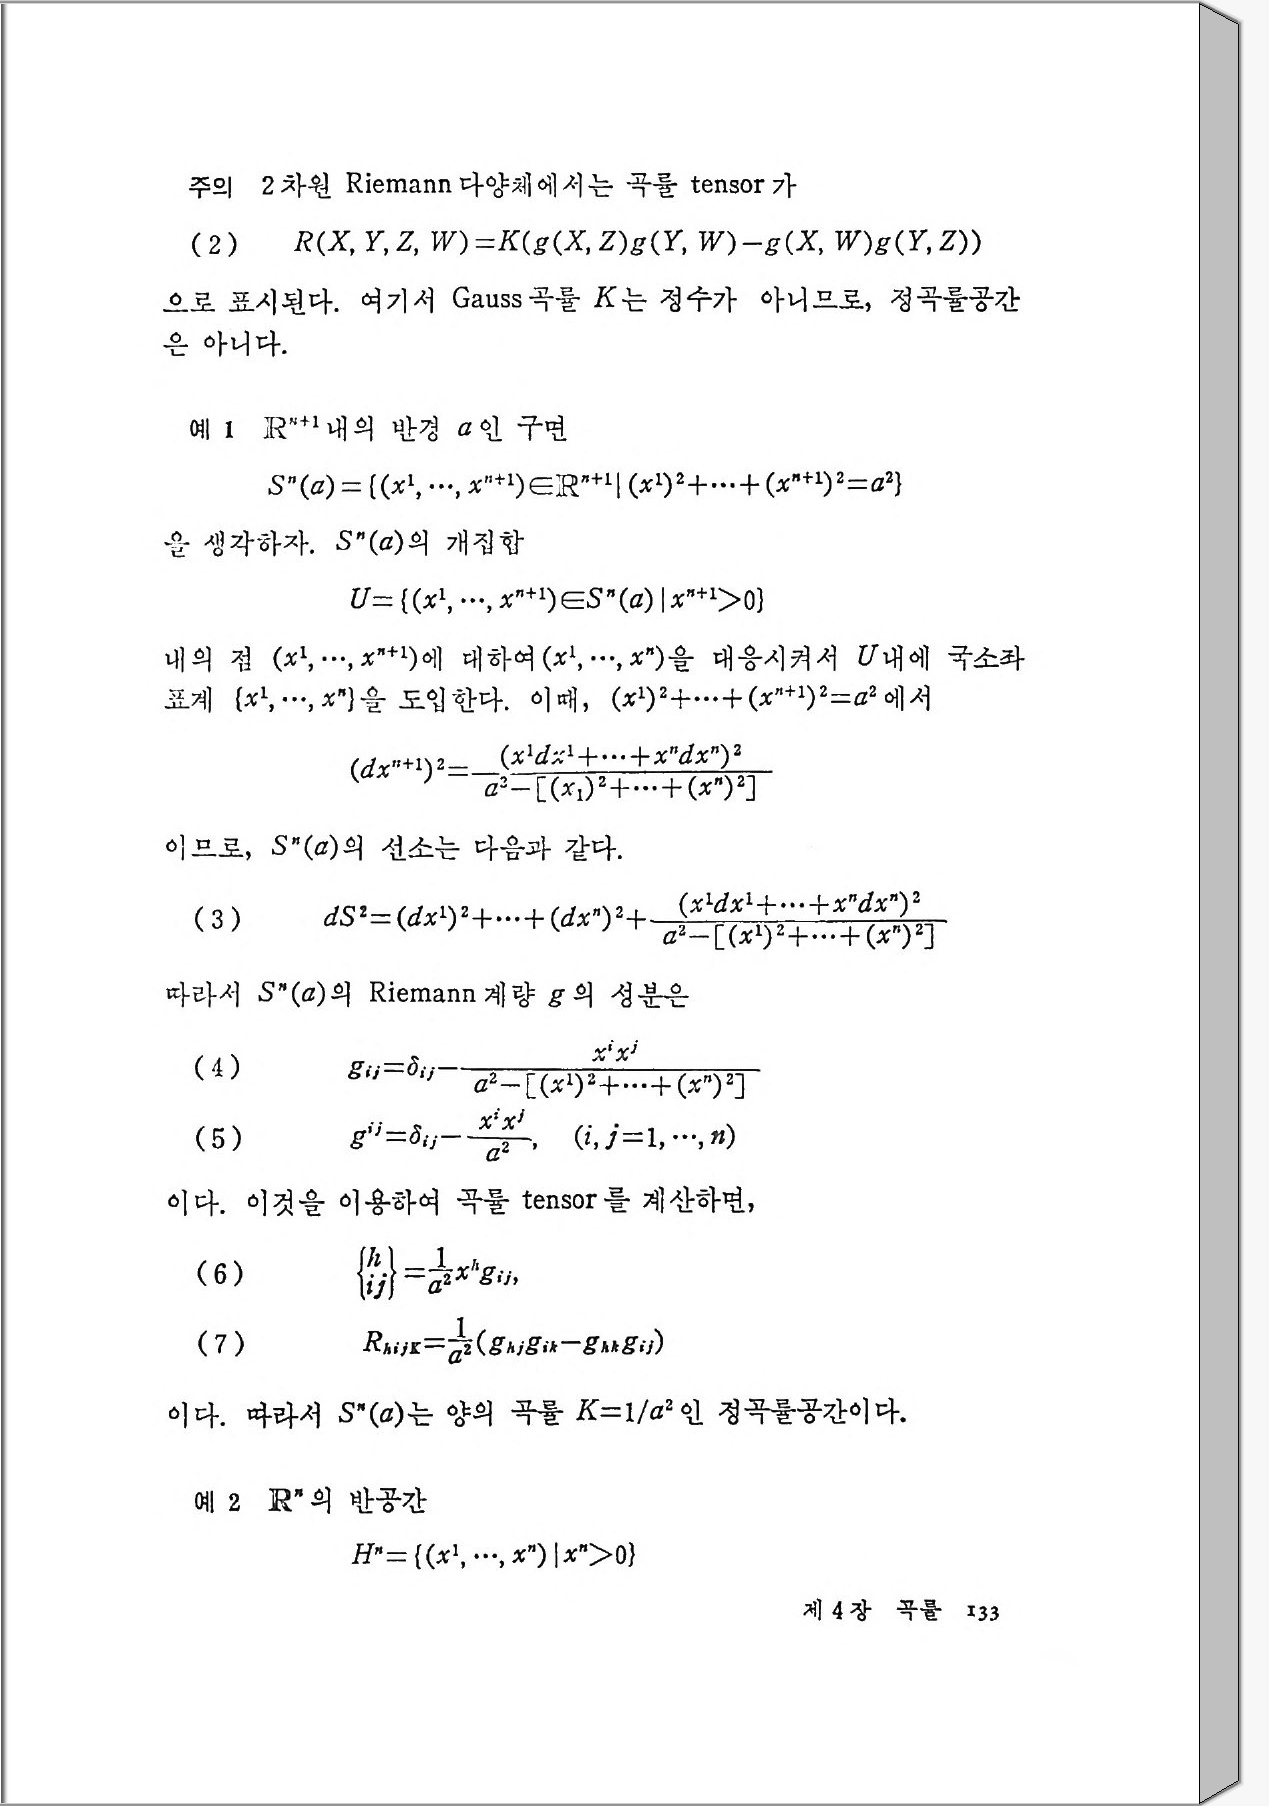 주의 2차원 Riemann 다양체에서는 곡률 tensor가
(2) R(X, Y, Z, W)=K(g(X, Z)g(Y, W)−g(X, W)g(Y, Z))
으로 표시된다. 여기서 Gauss 곡률 K는 정수가 아니므로, 정곡률공간
은 아니다.
예 1 ℝⁿ⁺¹내의 반경 a인 구면
Sⁿ(a)={(x¹, ⋯, xⁿ⁺¹)∈ℝⁿ⁺¹|(x¹)²+⋯+(xⁿ⁺¹)²=a²}
을 생각하자. Sⁿ(a)의 개집합
U={(x¹, ⋯, xⁿ⁺¹)∈Sⁿ(a)|xⁿ⁺¹>0}
내의 점 (x¹, ⋯, xⁿ⁺¹)에 대하여 (x¹, ⋯, xⁿ)을 대응시켜서 U내에 국소좌
표계 {x¹, ⋯, xⁿ}을 도입한다. 이때, (x¹)²+⋯+(xⁿ⁺¹)²=a²에서
(dxⁿ⁺¹)²=(x¹dx¹+⋯+xⁿdxⁿ)²/a²−[(x₁)²+⋯+(xⁿ)²]
이므로, Sⁿ(a)의 선소는 다음과 같다.
(3) dS²=(dx¹)²+⋯+(dxⁿ)²+(x¹dx¹+⋯+xⁿdxⁿ)²/a²−[(x¹)²+⋯+(xⁿ)²]
따라서 Sⁿ(a)의 Riemann 계량 g의 성분은
(4) g_{ij}=δ_{ij}−x^i x^j/a²−[(x¹)²+⋯+(xⁿ)²]
(5) g^{ij}=δ_{ij}−x^i x^j/a², (i, j=1, ⋯, n)
이다. 이것을 이용하여 곡률 tensor를 계산하면,
(6) {h ij}=1/a² x^h g_{ij},
(7) R_{hijK}=1/a²(g_{hj}g_{ik}−g_{hk}g_{ij})
이다. 따라서 Sⁿ(a)는 양의 곡률 K=1/a²인 정곡률공간이다.
예 2 ℝⁿ의 반공간
Hⁿ={(x¹, ⋯, xⁿ)|xⁿ>0}
제 4 장 곡률 133